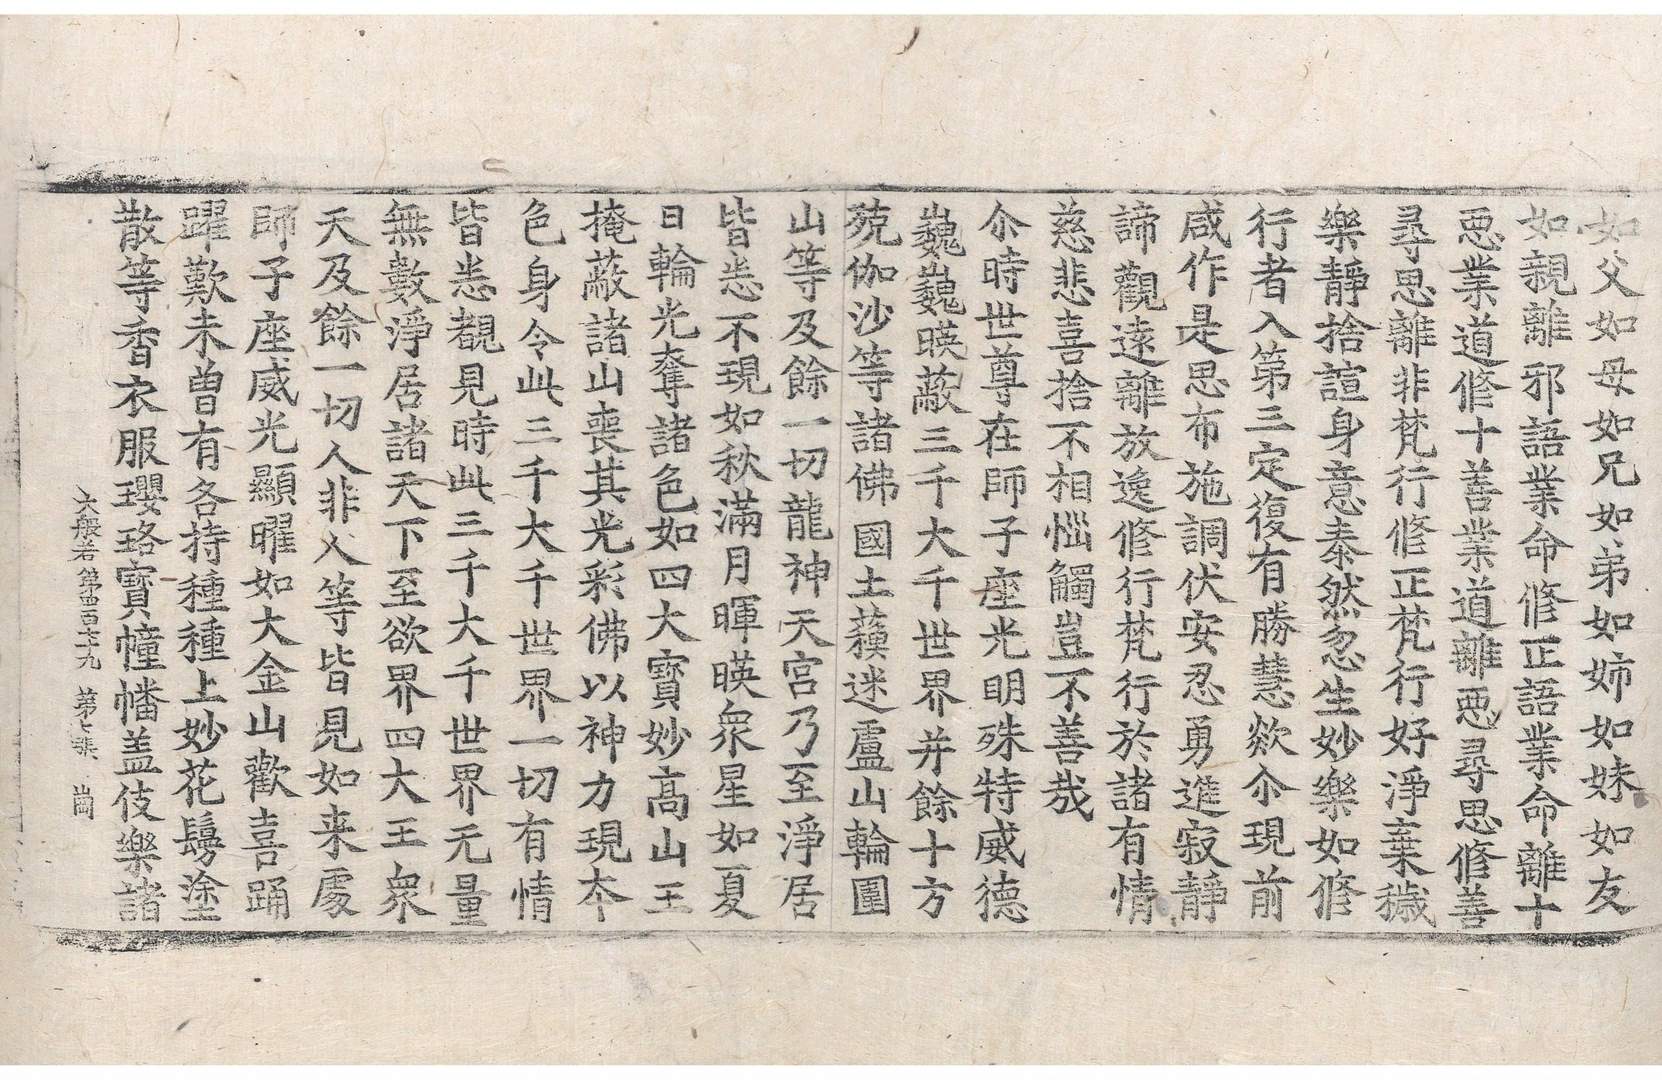 如父如母如兄如弟如姉如妹如友
如親離邪語業命修正語業命離十
惡業道修十善業道離惡尋思修善
尋思離非梵行修正梵行好淨棄穢
樂靜捨諠身意泰然忽生妙樂如修
行者入第三定復有勝慧歘尒現前
咸作是思布施調伏安忍勇進寂靜
諦觀遠離放逸修行梵行於諸有情
慈悲喜捨不相惱觸豈不善哉
尒時世尊在師子座光明殊特威德
巍巍暎蔽三千大千世界并餘十方
殑伽沙等諸佛國土蘇迷盧山輪圍
山等及餘一切龍神天宮乃至淨居
皆悉不現如秋滿月暉暎衆星如夏
日輪光奪諸色如四大寶妙高山王
掩蔽諸山喪其光彩佛以神力現夲
色身令此三千大千世界一切有情
皆悉覩見時此三千大千世界无量
無數淨居諸天下至欲界四大王衆
天及餘一切人非人等皆見如来處
師子座威光顯曜如大金山歡喜踊
躍歎未曾有各持種種上妙花鬘塗
散等香衣服瓔珞寶幢幡盖伎樂諸
大般若第四百七十九　第七張　崗